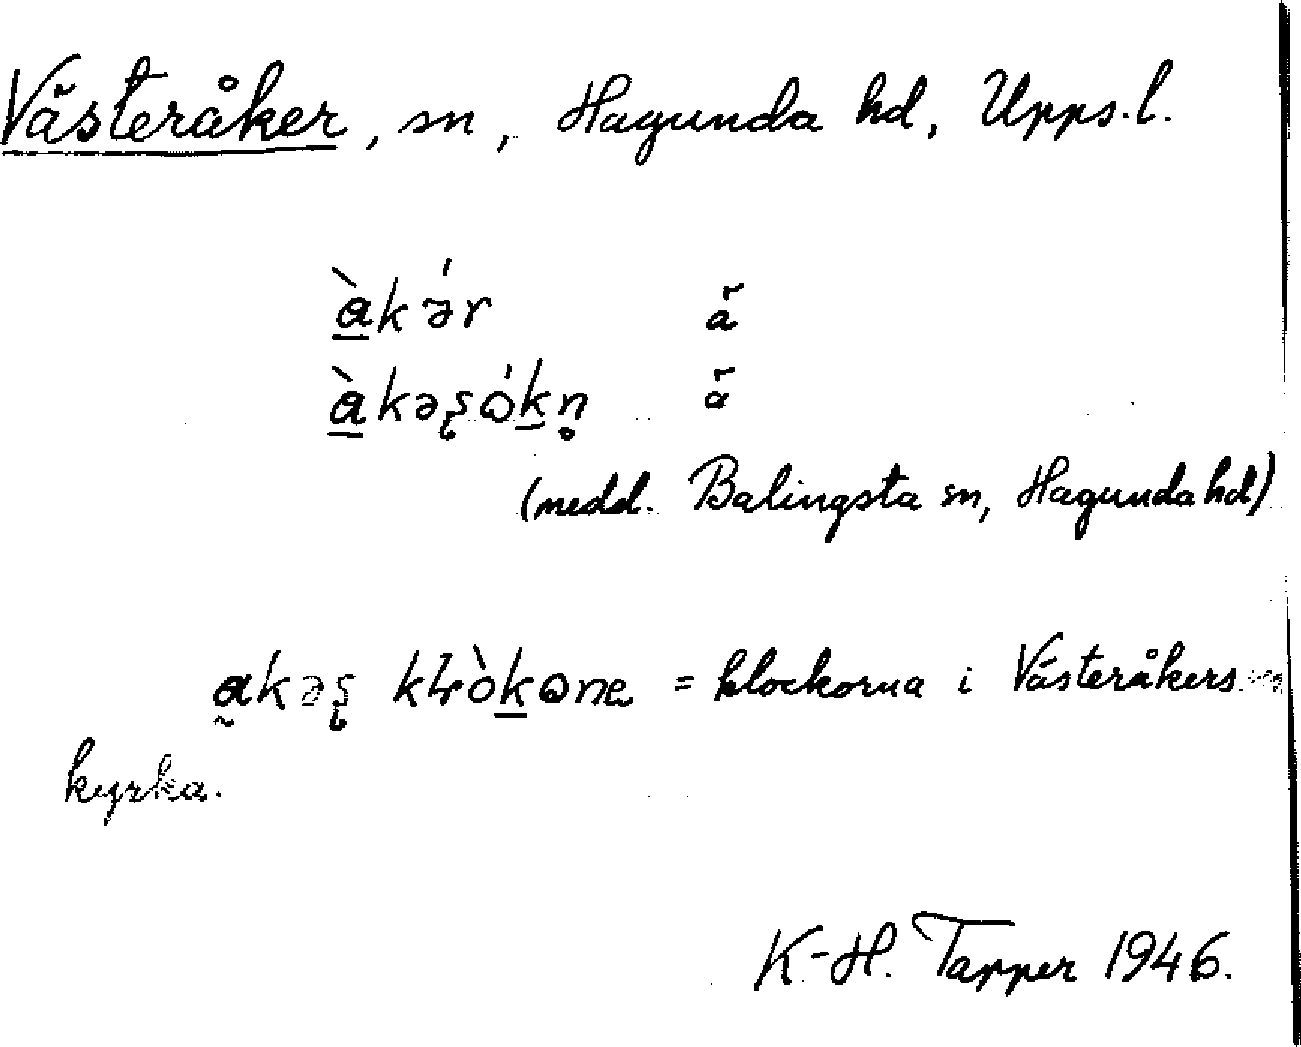 Västeråker, sn, Hagunda hd, Upps. l.
à̲kə́r ǎ
à̲kəʂók̲n̥ ǎ
(medd. Balingsta sn, Hagunda hd)
a̰kəʂ kɽòk̲ɷne = klockorna i Västeråkers
kyrka.
K-H. Tapper 1946.